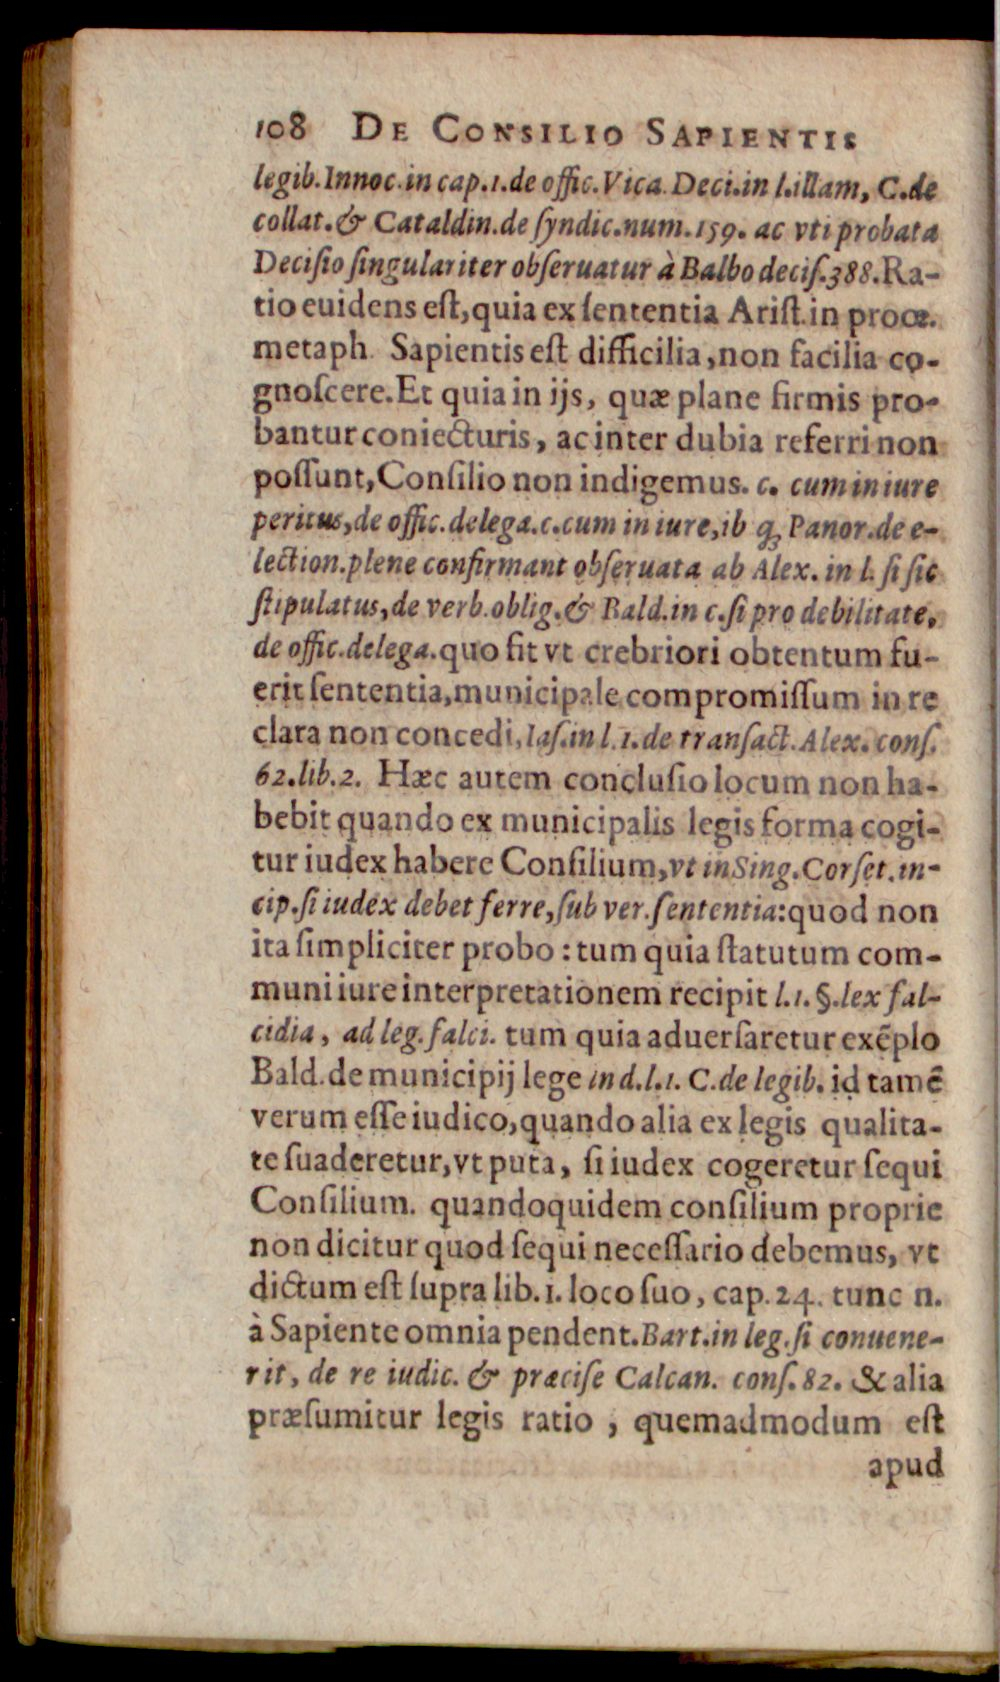 108 DE CONSILIO SAPIENTIS
legib. Innoc. in cap. 1. de offic. Vica. Deci. in l. illam, C. de
collat. & Cataldin. de ſyndic. num. 159. ac vti probata
Deciſio ſingulariter obſeruatur à Balbo deciſ. 388. Ra-
tio euidens eſt, quia ex ſententia Ariſt. in proœ.
metaph. Sapientis eſt difficilia, non facilia co-
gnoſcere. Et quia in ijs, quæ plane firmis pro-
bantur coniecturis, ac inter dubia referri non
poſſunt, Conſilio non indigemus. c. cum in iure
peritus, de offic. delega. c. cum in iure, ibiq; Panor. de e-
lection. plene confirmant obſeruata ab Alex. in l. ſi ſic
ſtipulatus, de verb. oblig. & Bald. in c. ſi pro debilitate,
de offic. delega. quo fit vt crebriori obtentum fu-
erit ſententia, municipale compromiſſum in re
clara non concedi, Iaſ. in l. 1. de tranſact. Alex. conſ.
62. lib. 2. Hæc autem concluſio locum non ha-
bebit quando ex municipalis legis forma cogi-
tur iudex habere Conſilium, vt in Sing. Corſet. in-
cip. ſi iudex debet ferre, ſub ver. ſententia: quod non
ita ſimpliciter probo: tum quia ſtatutum com-
muni iure interpretationem recipit l. 1. §. lex fal-
cidia, ad leg. falci. tum quia aduerſaretur exẽplo
Bald. de municipij lege in d. l. 1. C. de legib. id tamẽ
verum eſſe iudico, quando alia ex legis qualita-
te ſuaderetur, vt puta, ſi iudex cogeretur ſequi
Conſilium. quandoquidem conſilium proprie
non dicitur quod ſequi neceſſario debemus, vt
dictum eſt ſupra lib. 1. loco ſuo, cap. 24. tunc n.
à Sapiente omnia pendent. Bart. in leg. ſi conuene-
rit, de re iudic. & præciſe Calcan. conſ. 82. & alia
præſumitur legis ratio, quemadmodum eſt
apud